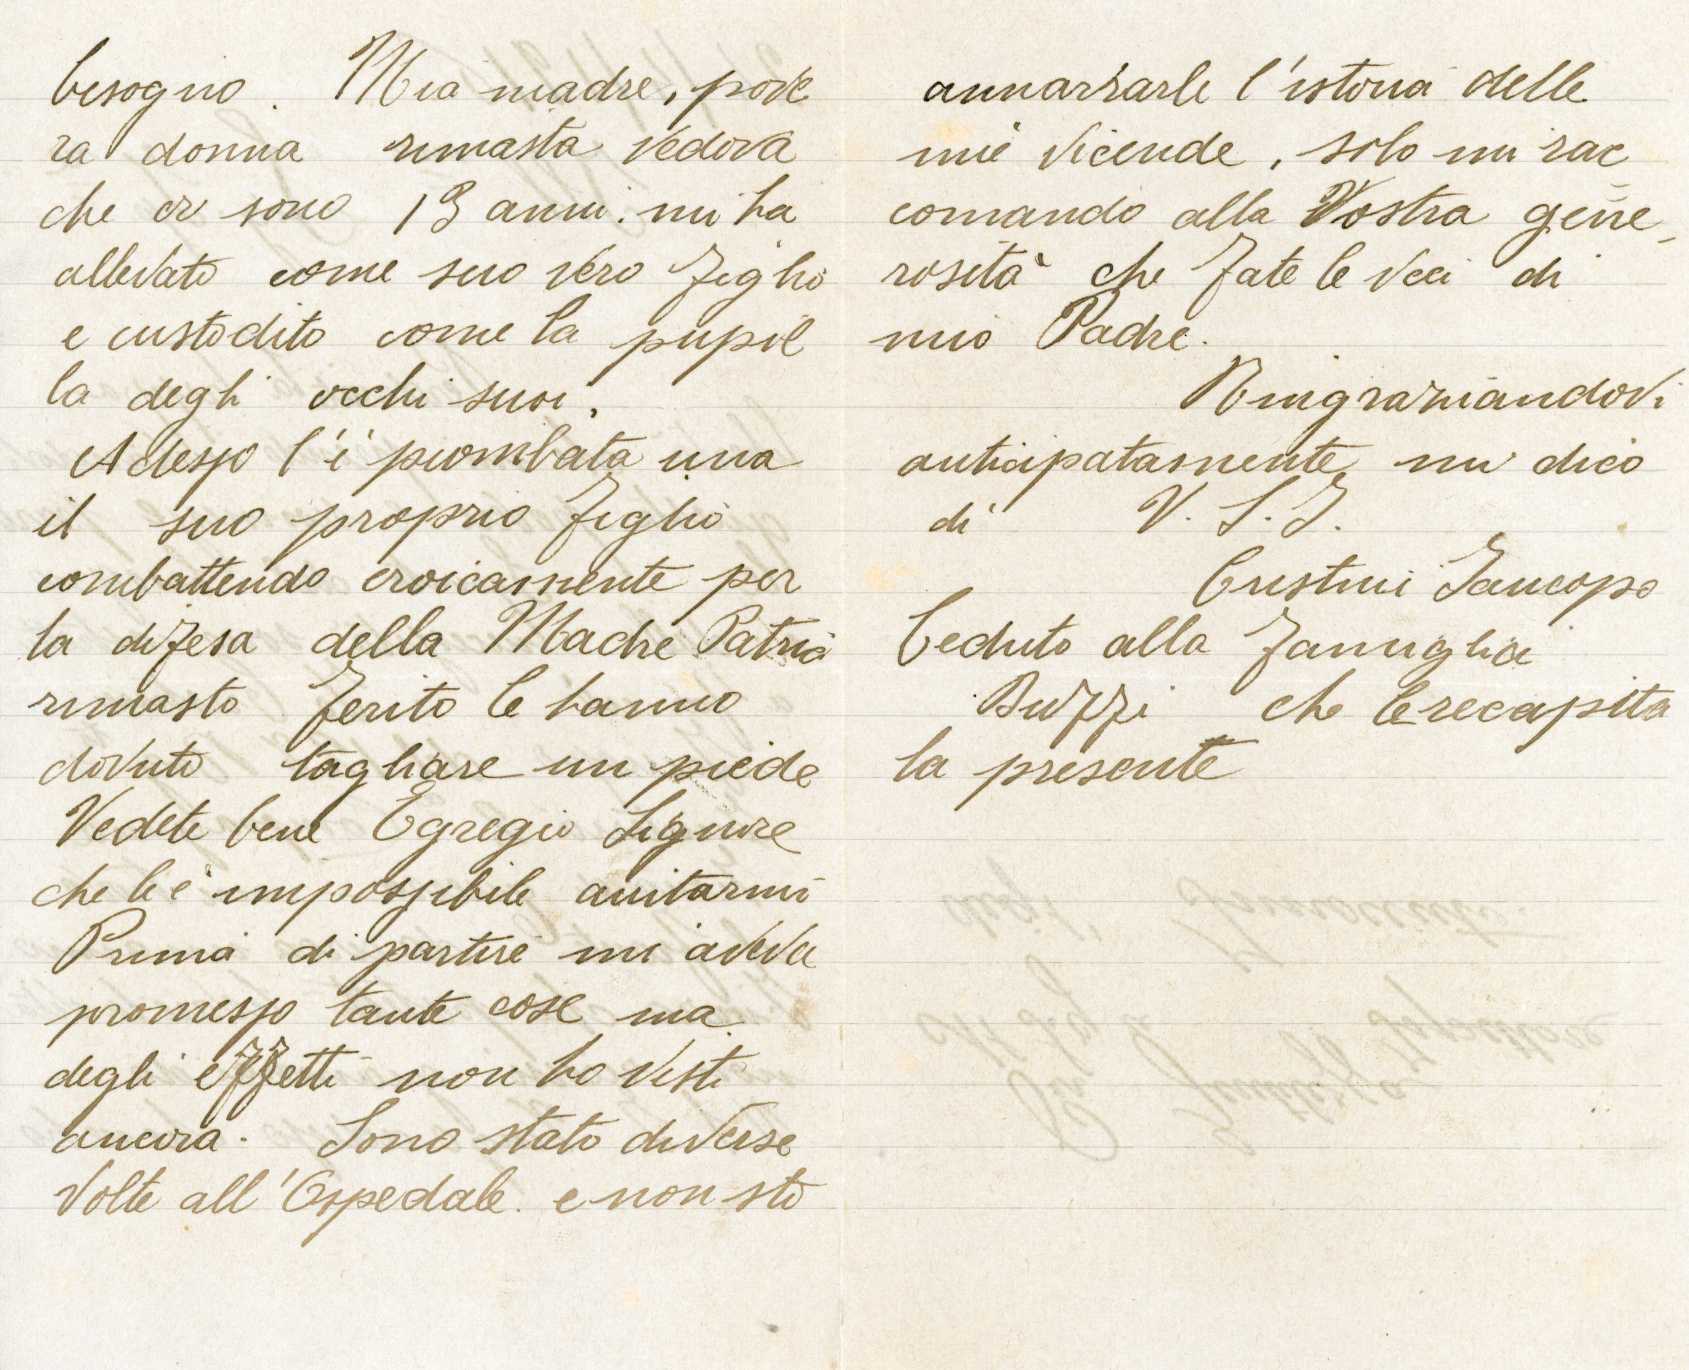 besogno. Mia madre, pove
ra donna rimasta vedova
che ci sono 13 anni. mi ha
allevato come suo vero figlio
e custodito come la pupil
la degli occhi suoi.
Adesso l'è piombata una
il suo proprio figlio
combattendo eroicamente per
la difesa della Madre Patria
rimasto ferito le hanno
dovuto tagliare un piede
Vedete bene Egregio Signore
che le è impossibile auitarmi
Prima di partire mi aveva
promesso tante cose ma
degli effetti non ho visti
ancora. Sono stato diverse
volte all'Ospedale. e non sto
annarrarle l'istoria delle
mie vicende, solo mi rac
comando alla Vostra gene-
rosità che fate le veci di
mio Padre.
Ringraziandovi
anticipatamente mi dico
di V. S. I.
Cristini Jaucopo
Ceduto alla famiglia
Buzzi che le recapita
la presente